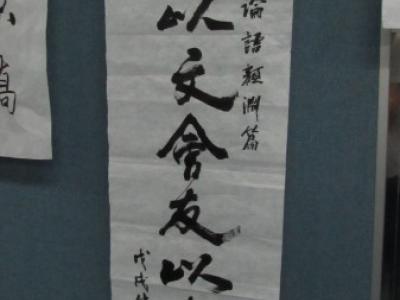 論語顏淵篇
以文會友以
戊戌